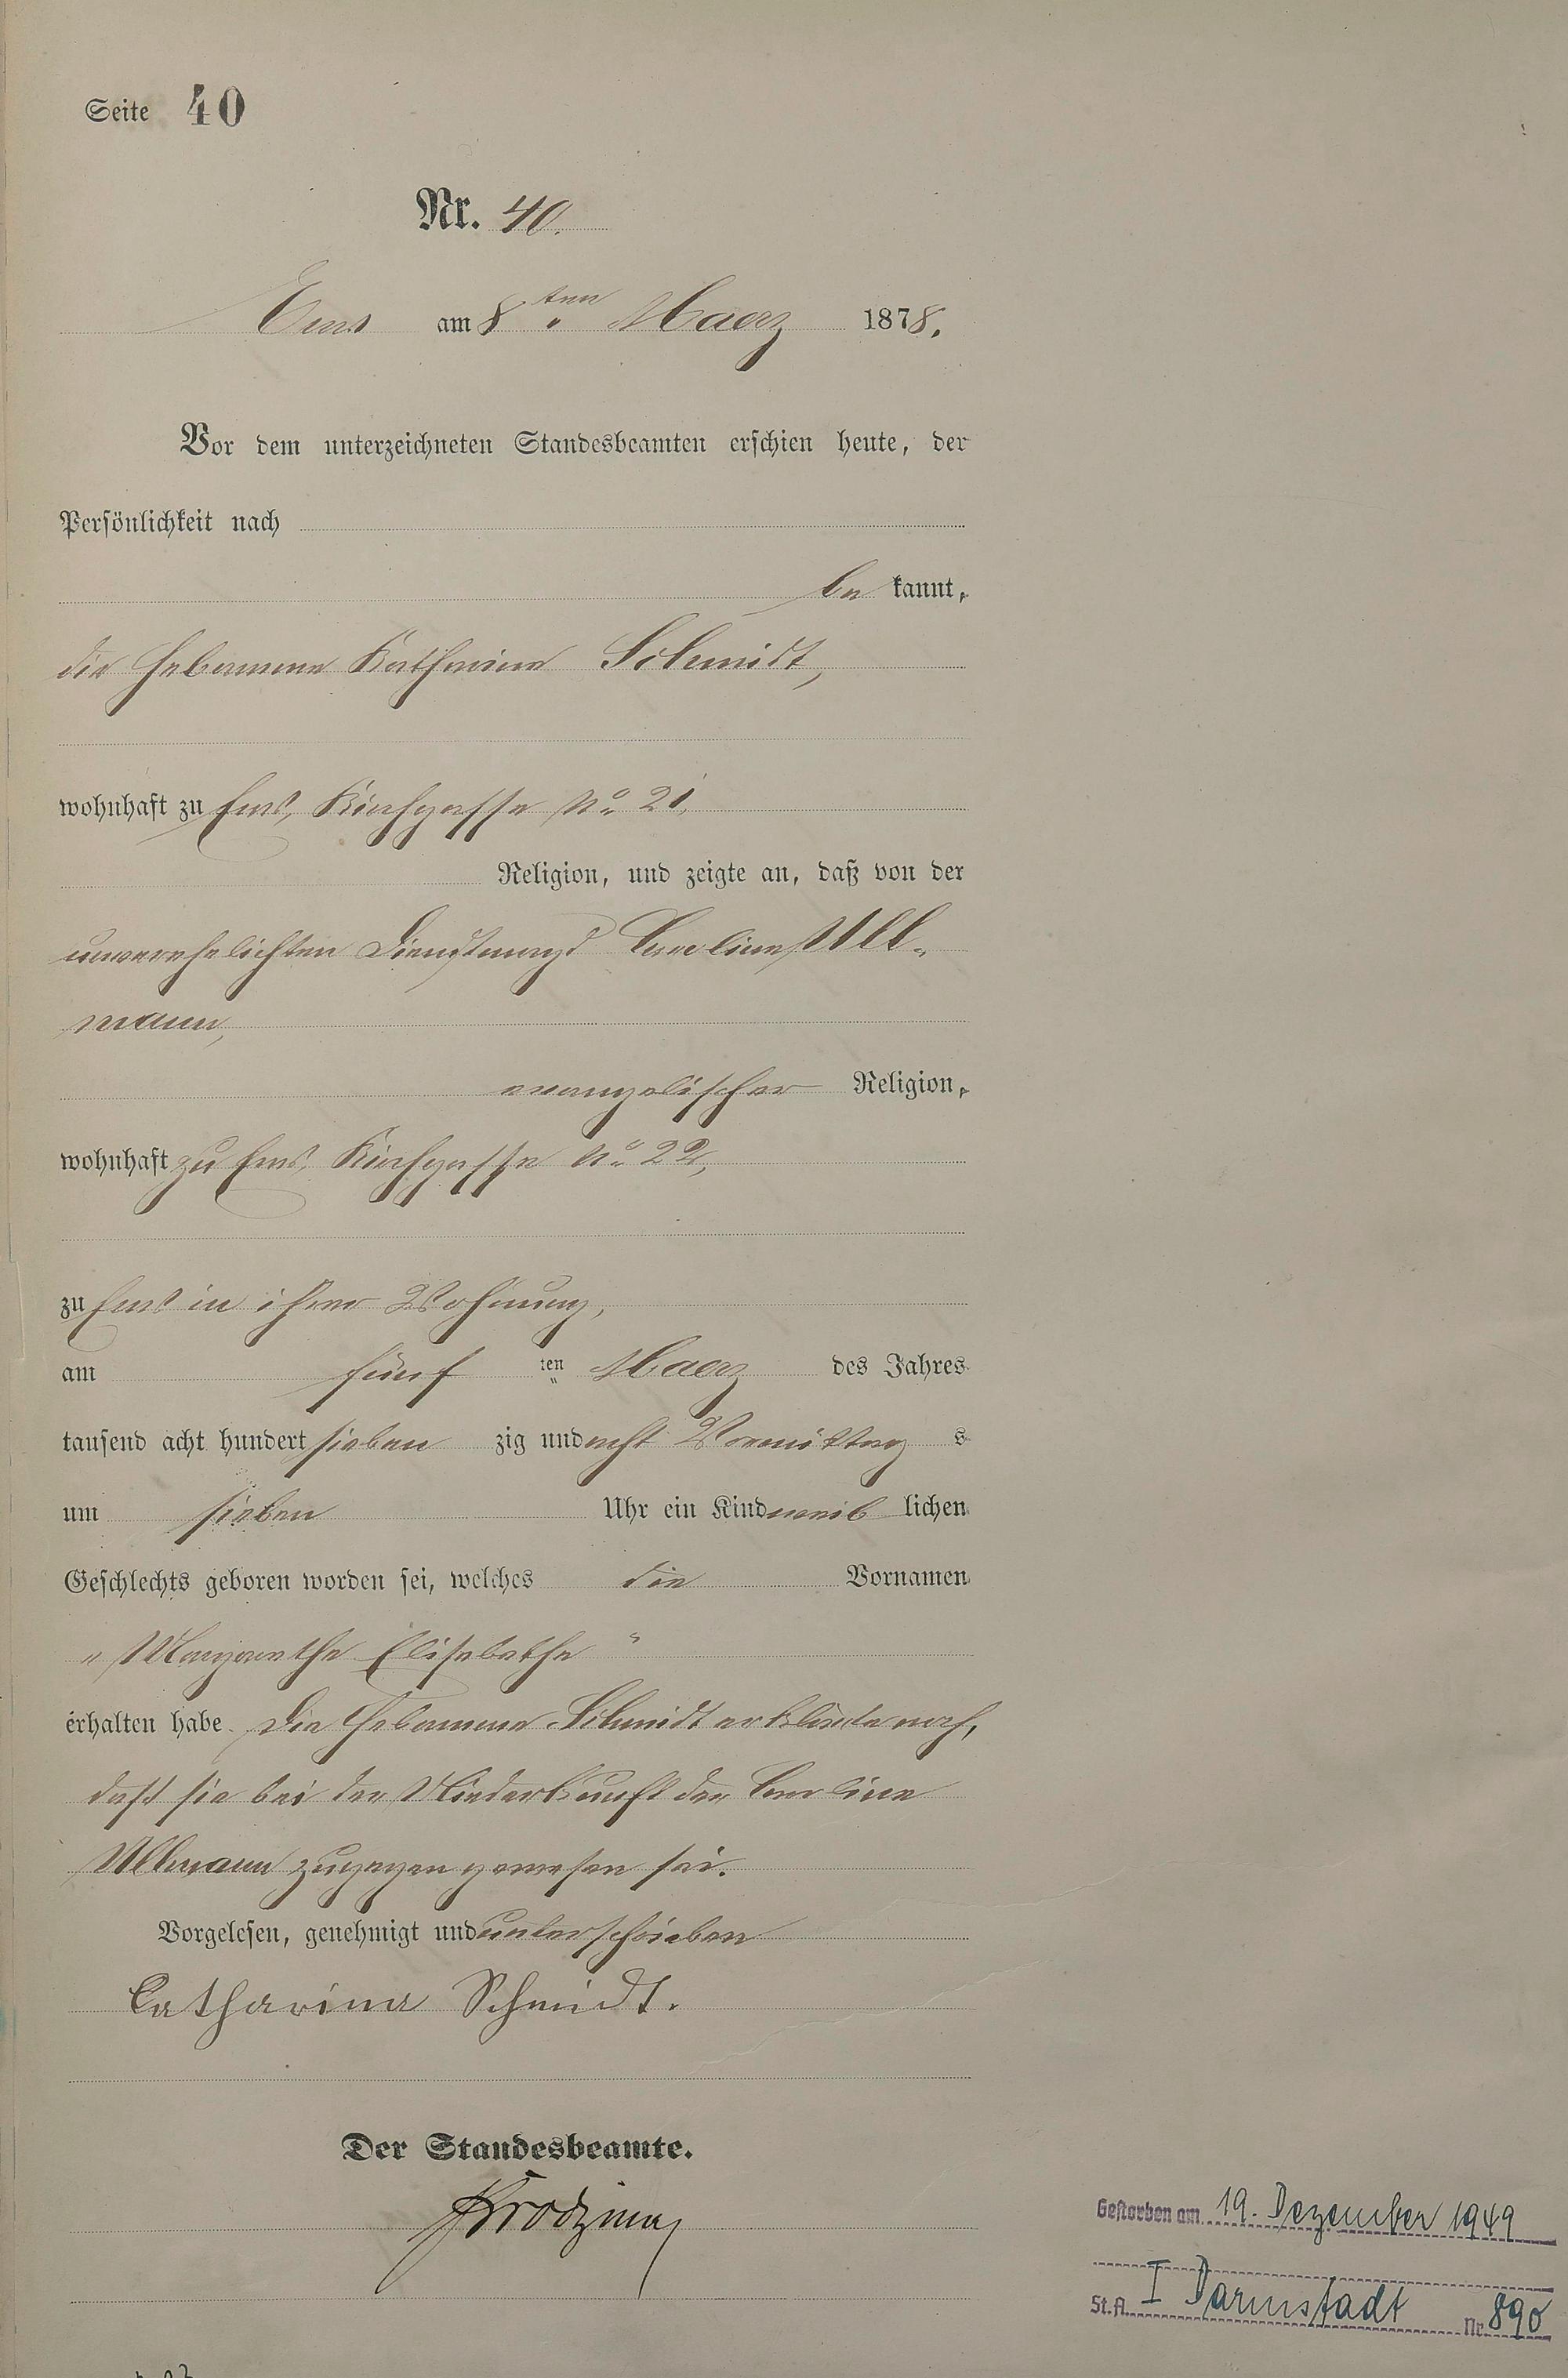 Seite 40
Nr. 40.
Ems am 8ten Maerz 1878.
Vor dem unterzeichneten Standesbeamten erschien heute, der
Persönlichkeit nach
be kannt,
die Hebamme Katharina Schmidt,
wohnhaft zu Ems, Kirchgasse No 21,
Religion, und zeigte an, daß von der
unverehelichten Dienstmagd Caroline Ull-
mann,
evangelischer Religion,
wohnhaft zu Ems, Kirchgasse No 22,
zu Ems in ihrer Wohnung,
am fünf ten Maerz des Jahres
tausend acht hundert sieben zig und acht Vormittag s
um sieben Uhr ein Kind weib lichen
Geschlechts geboren worden sei, welches die Vornamen
"Margarethe Elisabethe"
erhalten habe. Die Hebamme Schmidt erklärte noch,
daß sie bei der Niederkunft der Caroline
Ullmann zugegen gewesen sei.
Vorgelesen, genehmigt und unterschrieben
Catharina Schmidt.
Der Standesbeamte.
Gestorben am 19. Dezember 1949
St.A. I Darmstadt Nr. 890